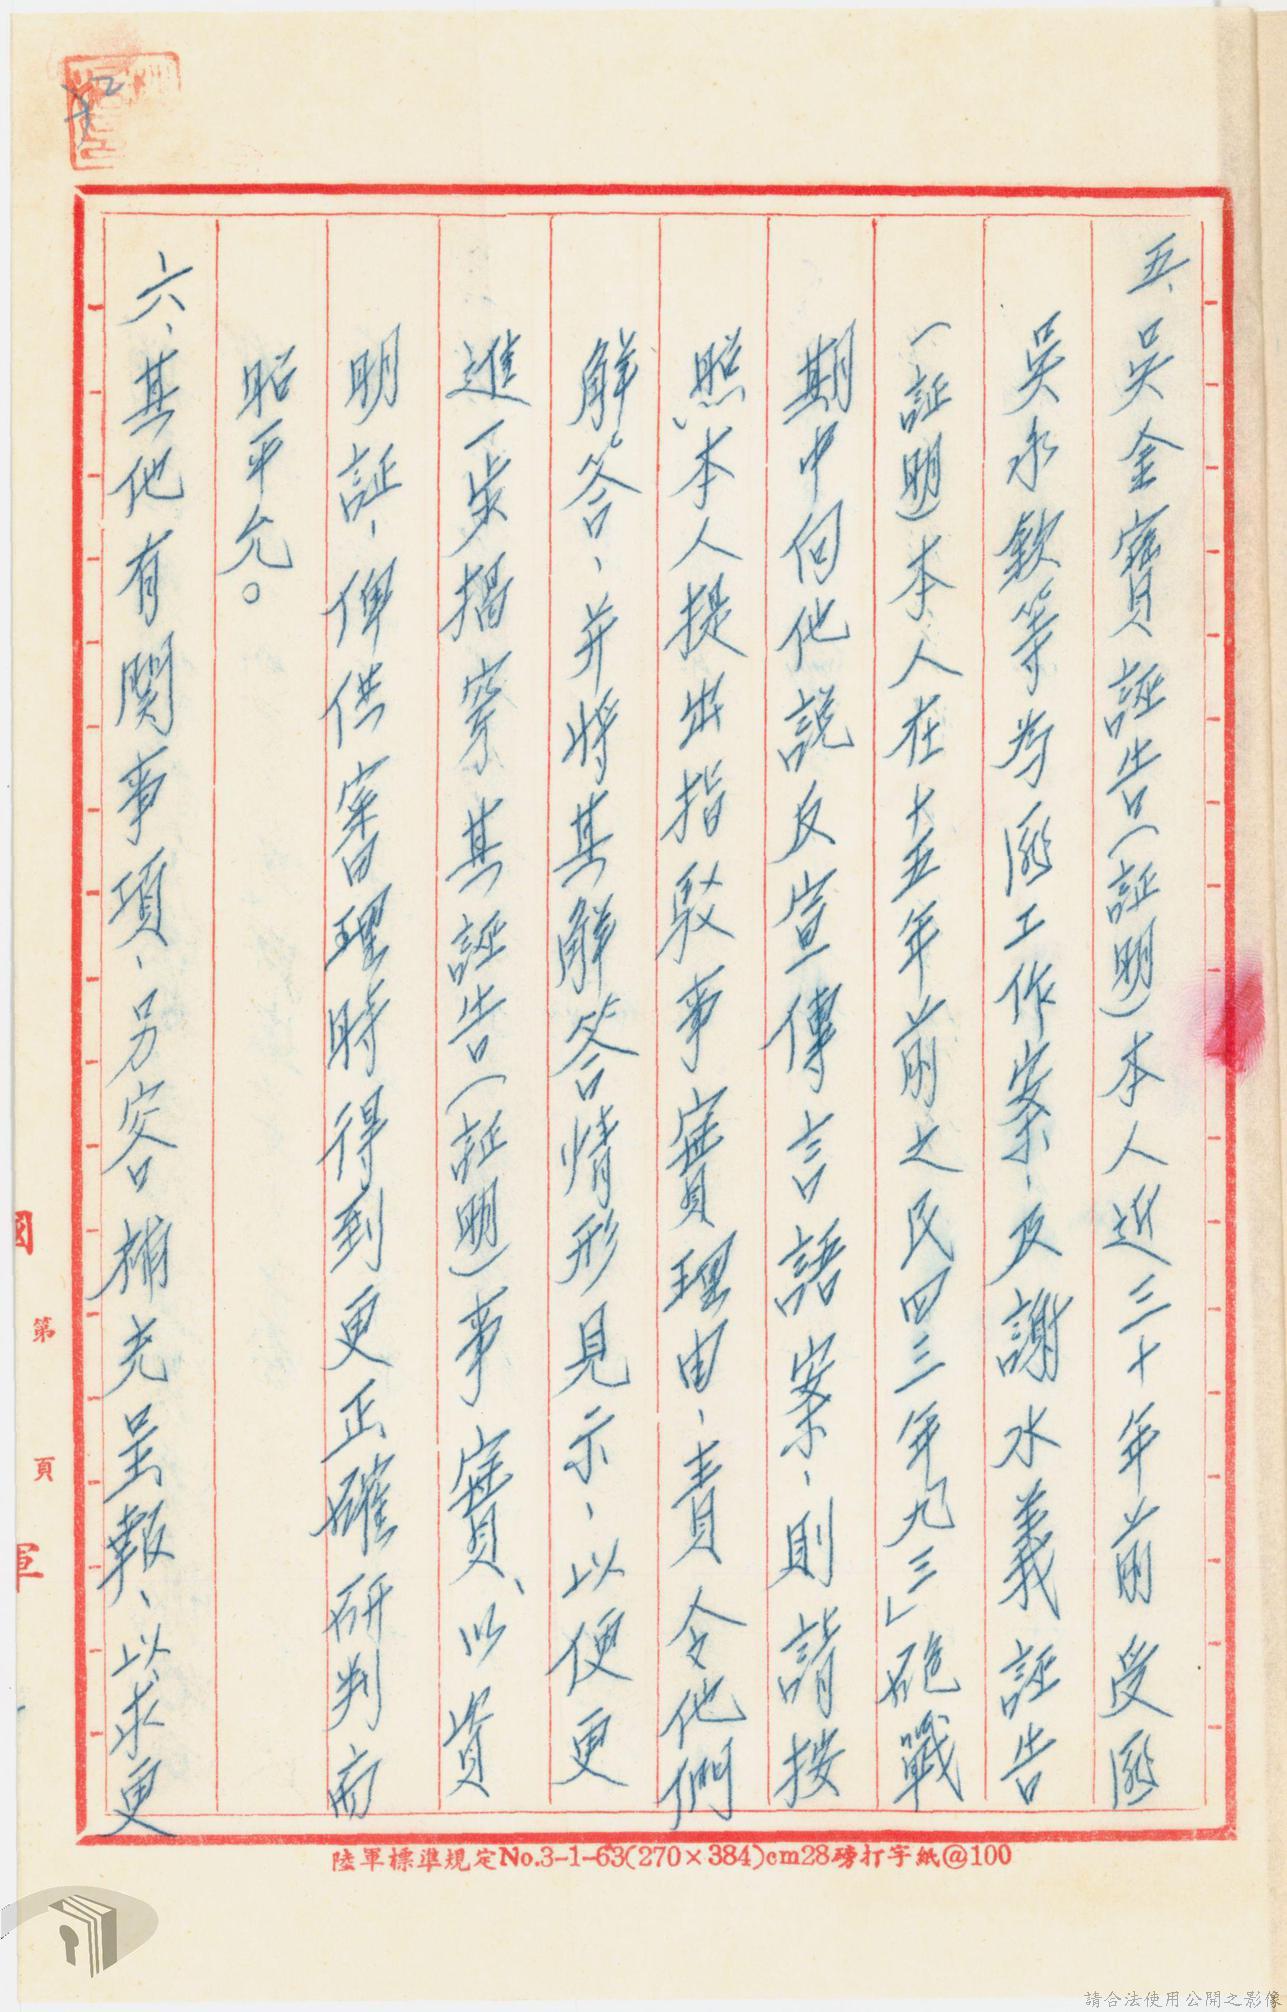 五、吳金寶誣告(証明)本人近三十年前受匪
吳永欽等為匪工作案、及謝水義誣告
(証明)本人在十五年前之民四三年「九三」砲戰
期中向他說反宣傳言語案、則請按
照本人提出指駁事實理由、責令他們
解答、并將其解答情形見示、以便更
進一步揭穿其誣告(証明)事實、以資
明証、俾供審理時得到更正確研判而
昭平允。
六、其他有関事項、另容補充呈報、以求更
第 頁
國
軍
陸軍標準規定No.3-1-63(270×384)cm28磅打字紙@100
請合法使用公開之影像